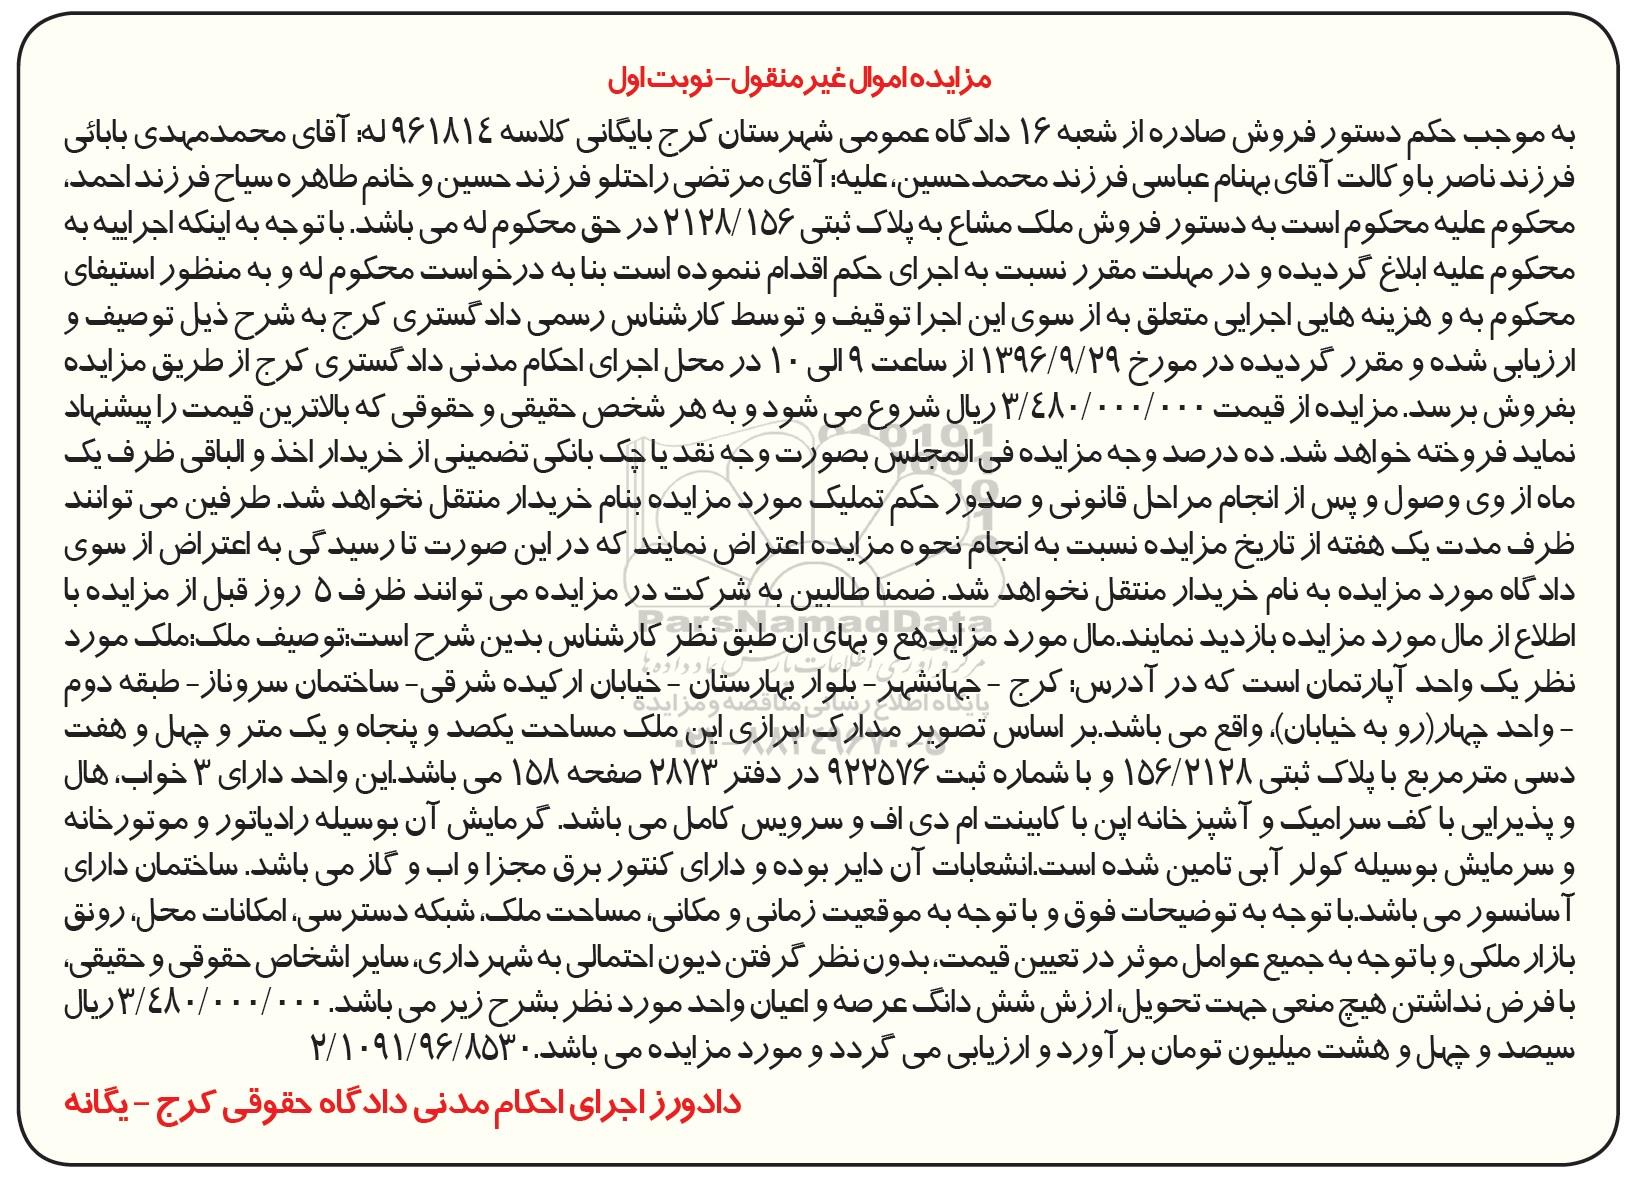 مزایده اموال غیر منقول-نوبت اول
به موجب حکم دستور فروش صادره از شعبه ۱۶ دادگاه عمومی شهرستان کرج بایگانی کلاسه ۹۶۱۸۱۴ له: آقای محمدمهدی بابائی
فرزند ناصر با وکالت آقای بهنام عباسی فرزند محمدحسین، علیه: آقای مرتضی راحتلو فرزند حسین و خانم طاهره سیاح فرزند احمد،
محکوم علیه محکوم است به دستور فروش ملک مشاع به پلاک ثبتی ۲۱۲۸/۱۵۶ در حق محکوم له می باشد. با توجه به اینکه اجراییه به
محکوم علیه ابلاغ گردیده و در مهلت مقرر نسبت به اجرای حکم اقدام ننموده است بنا به درخواست محکوم له و به منظور استیفای
محکوم به و هزینه هایی اجرایی متعلق به از سوی این اجرا توقیف و توسط کارشناس رسمی دادگستری کرج به شرح ذیل توصیف و
ارزیابی شده و مقرر گردیده در مورخ ۱۳۹۶/۹/۲۹ از ساعت ۹ الی ۱۰ در محل اجرای احکام مدنی دادگستری کرج از طریق مزایده
بفروش برسد. مزایده از قیمت ۳/۴۸۰/۰۰۰/۰۰۰ ریال شروع می شود و به هر شخص حقیقی و حقوقی که بالاترین قیمت را پیشنهاد
نماید فروخته خواهد شد. ده درصد وجه مزایده فی المجلس بصورت وجه نقد یا چک بانکی تضمینی از خریدار اخذ و الباقی ظرف یک
ماه از وی وصول و پس از انجام مراحل قانونی و صدور حکم تملیک مورد مزایده بنام خریدار منتقل نخواهد شد. طرفین می توانند
ظرف مدت یک هفته از تاریخ مزایده نسبت به انجام نحوه مزایده اعتراض نمایند که در این صورت تا رسیدگی به اعتراض از سوی
دادگاه مورد مزایده به نام خریدار منتقل نخواهد شد. ضمنا طالبین به شرکت در مزایده می توانند ظرف ۵ روز قبل از مزایده با
اطلاع از مال مورد مزایده بازدید نمایند.مال مورد مزایدهع و بهای ان طبق نظر کارشناس بدین شرح است:توصیف ملک:ملک مورد
نظر یک واحد آپارتمان است که در آدرس: کرج - جهانشهر- بلوار بهارستان - خیابان ارکیده شرقی- ساختمان سروناز- طبقه دوم
- واحد چهار(رو به خیابان)، واقع می باشد.بر اساس تصویر مدارک ابرازی این ملک مساحت یکصد و پنجاه و یک متر و چهل و هفت
دسی مترمربع با پلاک ثبتی ۱۵۶/۲۱۲۸ و با شماره ثبت ۹۲۲۵۷۶ در دفتر ۲۸۷۳ صفحه ۱۵۸ می باشد.این واحد دارای ۳ خواب، هال
و پذیرایی با کف سرامیک و آشپزخانه اپن با کابینت ام دی اف و سرویس کامل می باشد. گرمایش آن بوسیله رادیاتور و موتورخانه
و سرمایش بوسیله کولر آبی تامین شده است.انشعابات آن دایر بوده و دارای کنتور برق مجزا و اب و گاز می باشد. ساختمان دارای
آسانسور می باشد.با توجه به توضیحات فوق و با توجه به موقعیت زمانی و مکانی، مساحت ملک، شبکه دسترسی، امکانات محل، رونق
بازار ملکی و با توجه به جمیع عوامل موثر در تعیین قیمت، بدون نظر گرفتن دیون احتمالی به شهرداری، سایر اشخاص حقوقی و حقیقی،
با فرض نداشتن هیچ منعی جهت تحویل، ارزش شش دانگ عرصه و اعیان واحد مورد نظر بشرح زیر می باشد. ۳/۴۸۰/۰۰۰/۰۰۰ ریال
سیصد و چهل و هشت میلیون تومان برآورد و ارزیابی می گردد و مورد مزایده می باشد.۲/۱۰۹۱/۹۶/۸۵۳۰
دادورز اجرای احکام مدنی دادگاه حقوقی کرج - یگانه
ParsNamadData
پایگاه اطلاع رسانی مناقصه و مزایده
۰۲۱-۸۸۳۴۹۶۷۰-۵